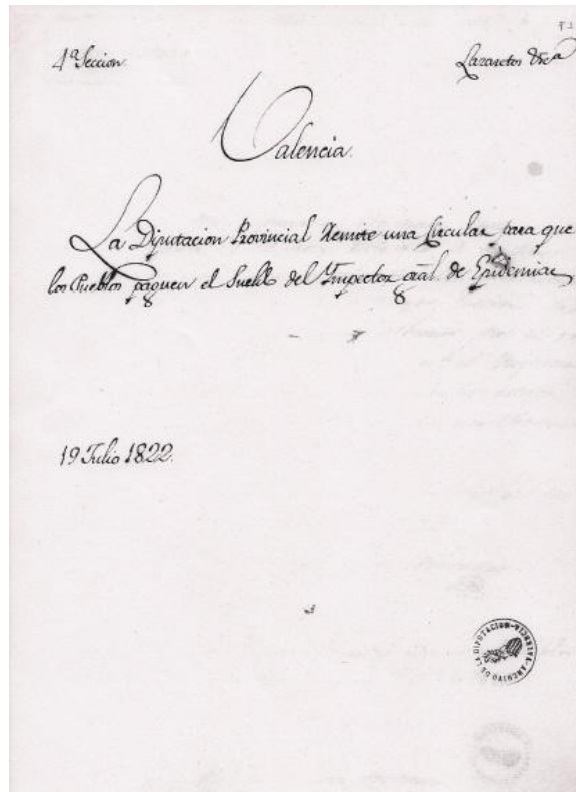 4ª Seccion
Lazaretos &cª
Valencia.
La Diputacion Provincial Remite una Circular para que
los Pueblos paguen el Sueldo del Ynspector gral. de Epidemias
19 Julio 1822.
ARCHIVO DE LA DIPUTACION-VALENCIA